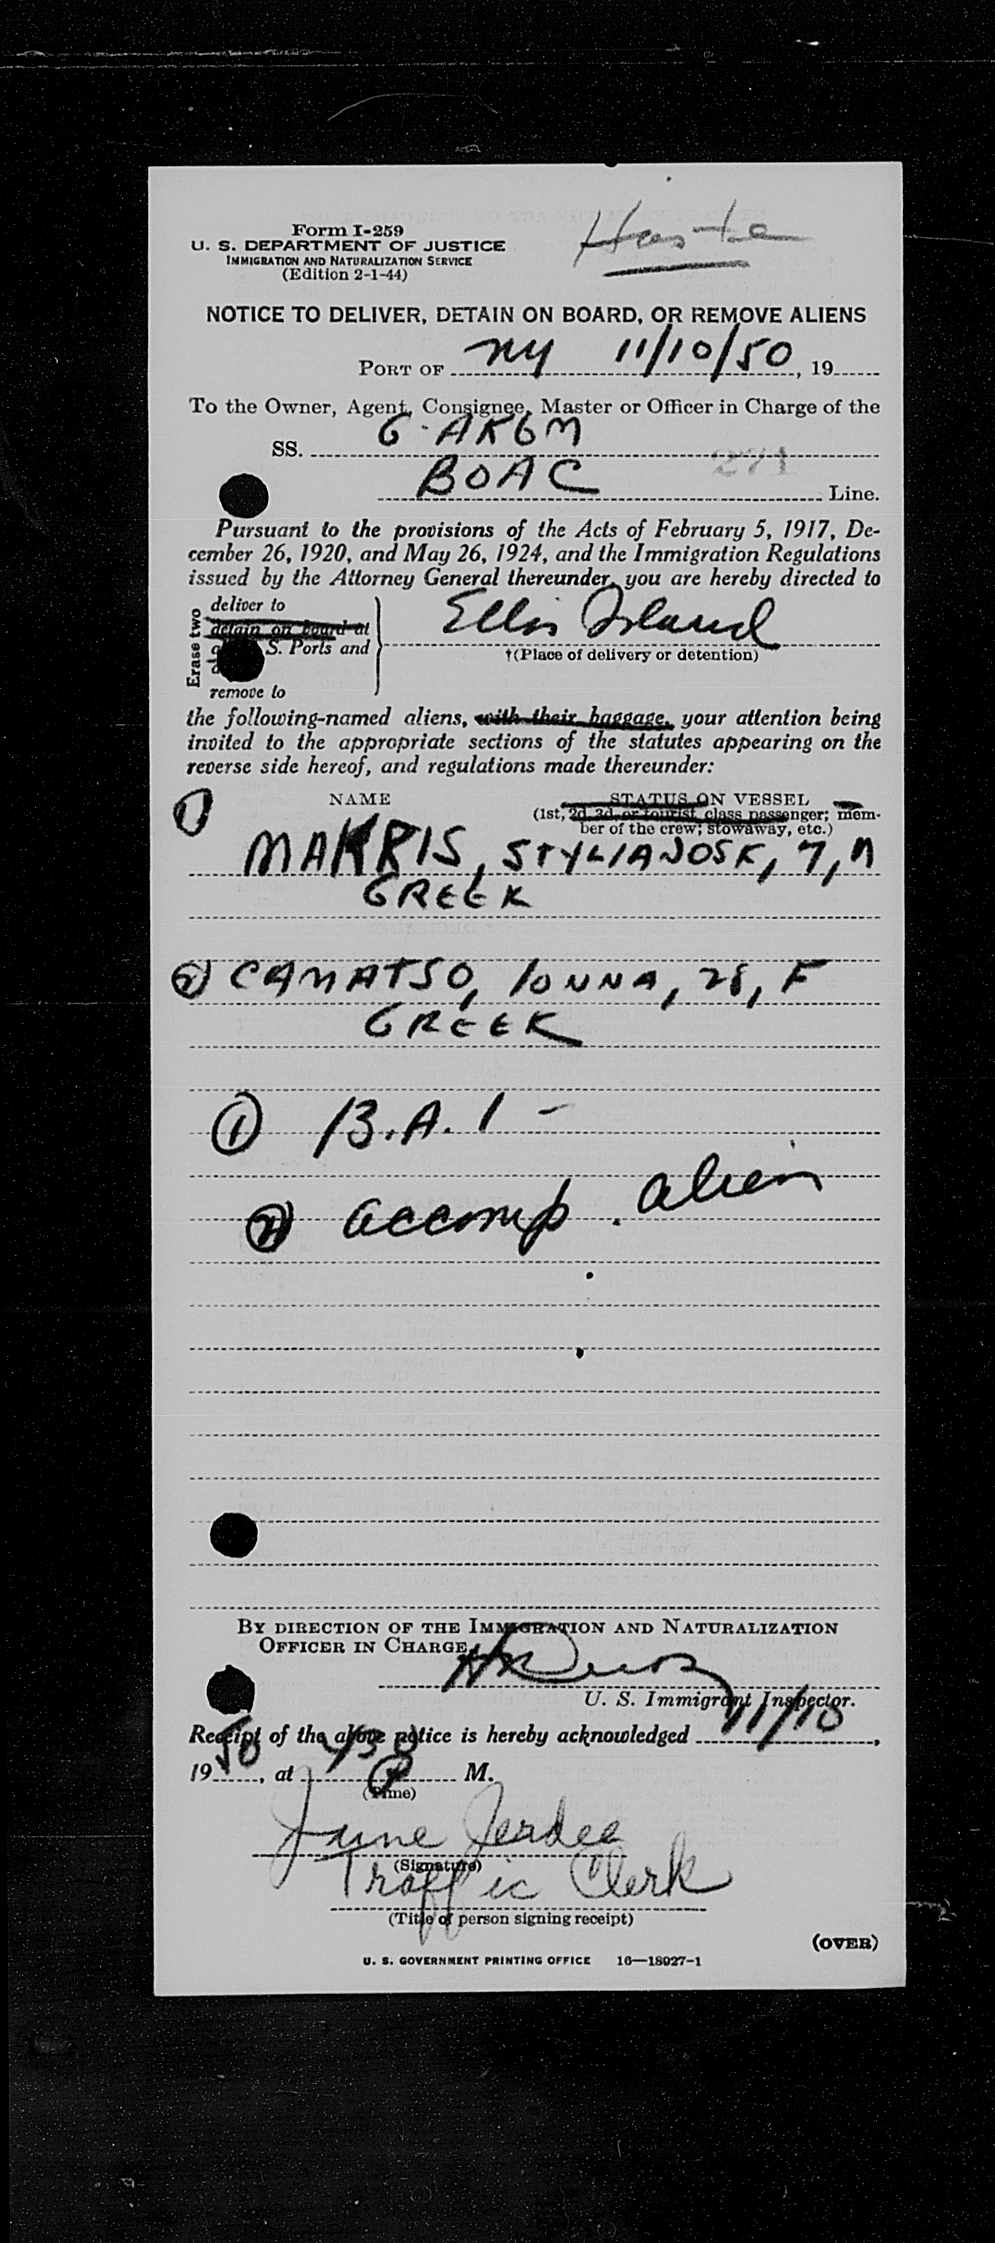 Form I-259
U. S. DEPARTMENT OF JUSTICE
IMMIGRATION AND NATURALIZATION SERVICE
(Edition 2-1-44)
NOTICE TO DELIVER, DETAIN ON BOARD, OR REMOVE ALIENS
PORT OF NY 11/10/50, 19
To the Owner, Agent, Consignee, Master or Officer in Charge of the
SS. G-AKGM
271
BOAC Line.
Pursuant to the provisions of the Acts of February 5, 1917, De-
cember 26, 1920, and May 26, 1924, and the Immigration Regulations
issued by the Attorney General thereunder, you are hereby directed to
Erase two
deliver to
detain on board at
S. Ports and
remove to
Ellis Island
†(Place of delivery or detention)
the following-named aliens, with their baggage, your attention being
invited to the appropriate sections of the statutes appearing on the
reverse side hereof, and regulations made thereunder:
NAME
STATUS ON VESSEL
(1st, 2d, 3d, or tourist class passenger; mem-
ber of the crew; stowaway, etc.)
1 MAKRIS, STYLIANOS K, 7, M
GREEK
2 CAMATSO, IONNA, 28, F
GREEK
1 B.A.I -
2 accomp. alien
BY DIRECTION OF THE IMMIGRATION AND NATURALIZATION
OFFICER IN CHARGE,
U. S. Immigrant Inspector.
Receipt of the above notice is hereby acknowledged 11/10,
1950, at 430 P M.
(Time)
June Jerdee
(Signature)
Traffic Clerk
(Title of person signing receipt)
(OVER)
U. S. GOVERNMENT PRINTING OFFICE 16—18027-1